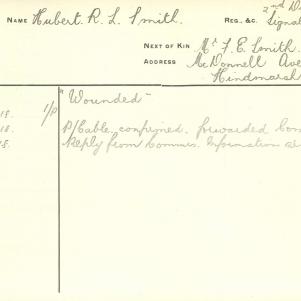 NAME Hubert. R. L. Smith. REG., &C. 2nd D
Signal
NEXT OF KIN Mr F. E. Smith.
ADDRESS McDonnell Ave
Hindmarsh
"Wounded"
18. 1/P
18. P/Cable confirmed. forwarded Com
18. Reply from Commrs. Information al